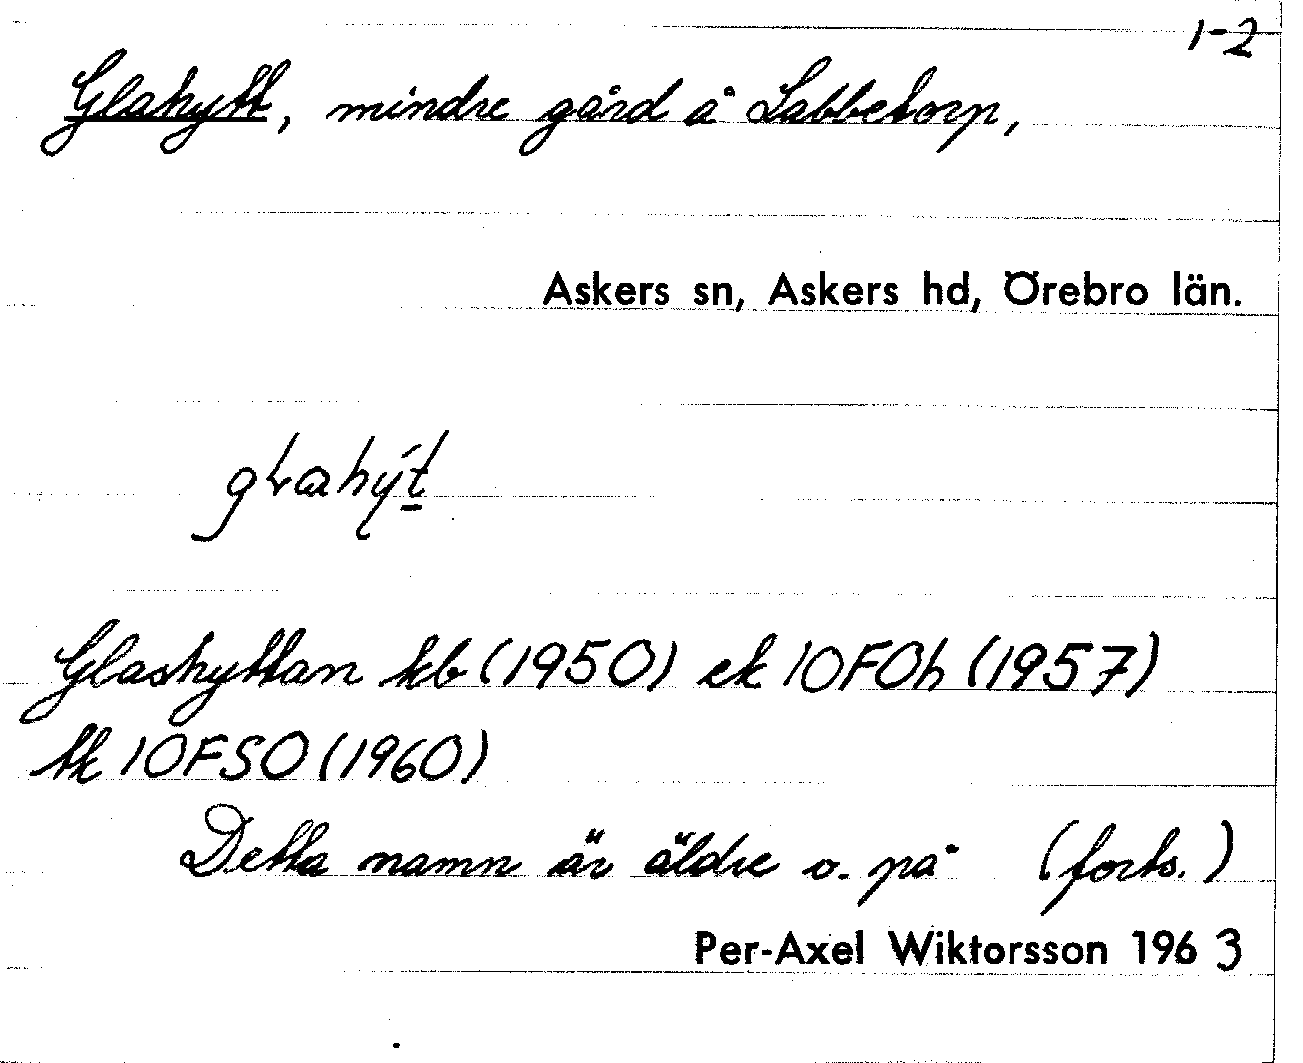 1-2
Glahytt, mindre gård å Labbetorp,
Askers sn, Askers hd, Örebro län.
Glashyttan kb (1950) ek 10F0h (1957)
tk 10FSO (1960)
Detta namn är äldre o. på (forts.)
Per-Axel Wiktorsson 1963